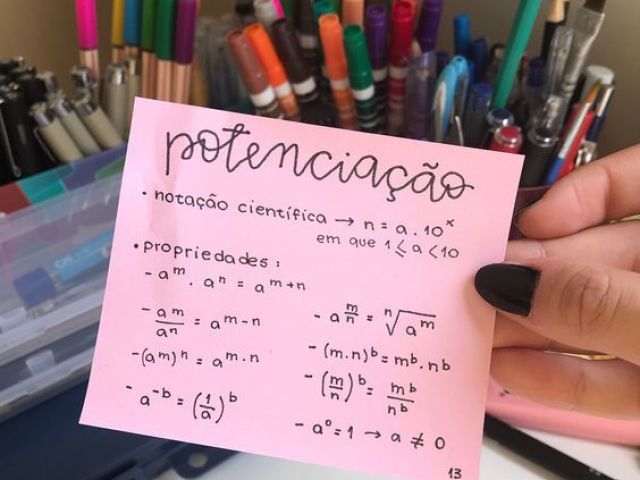 potenciação
• notação científica → n = a . 10ˣ
em que 1 ≤ a < 10
• propriedades:
- aᵐ . aⁿ = aᵐ⁺ⁿ
- aᵐ/aⁿ = aᵐ⁻ⁿ
- (aᵐ)ⁿ = aᵐ·ⁿ
- a⁻ᵇ = (1/a)ᵇ
- a^(m/n) = ⁿ√aᵐ
- (m.n)ᵇ = mᵇ . nᵇ
- (m/n)ᵇ = mᵇ/nᵇ
- a⁰ = 1 → a ≠ 0
13